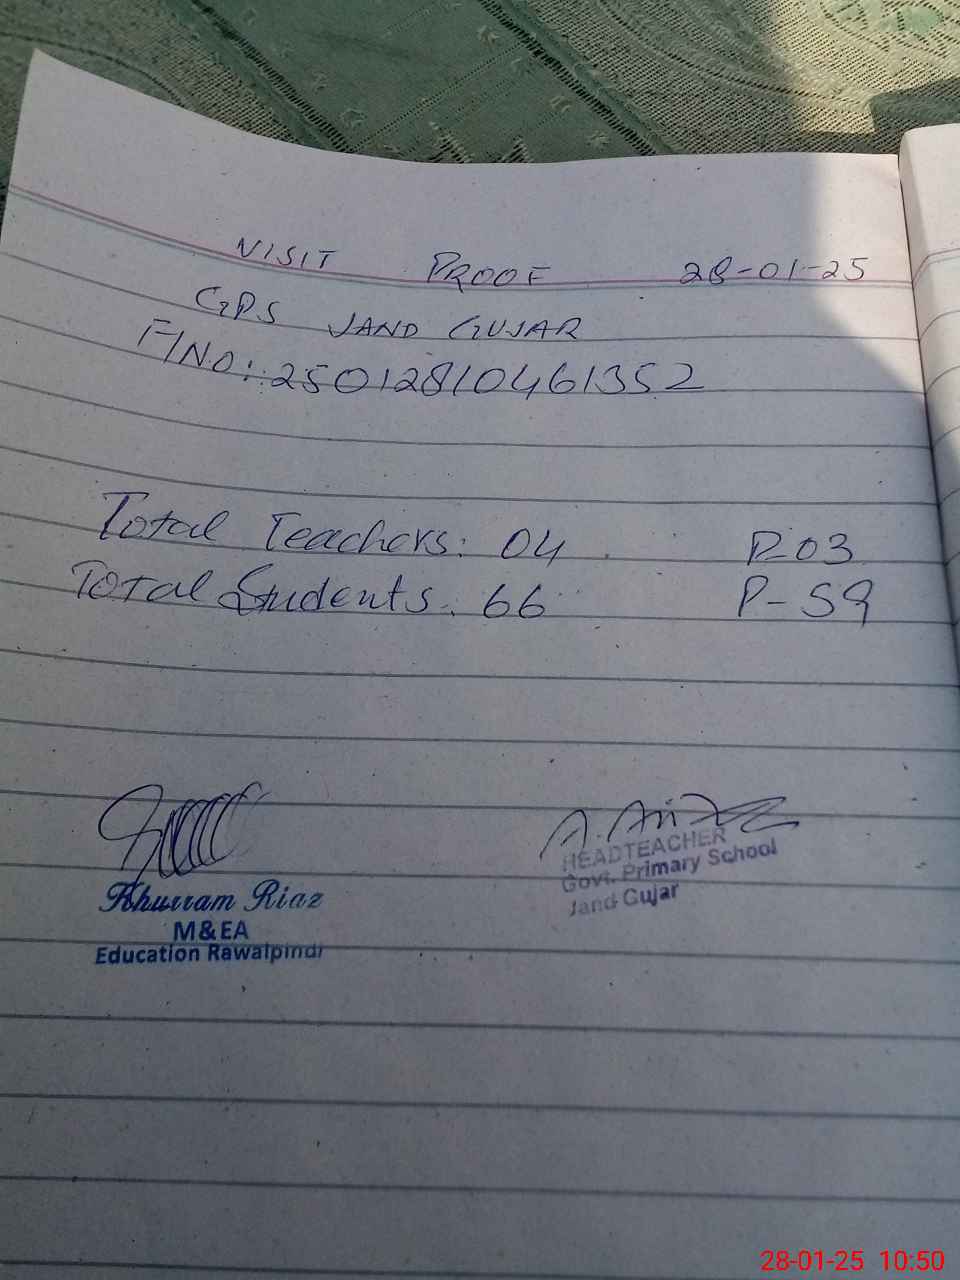 VISIT PROOF 28-01-25
GPS JAND GUJAR
F/NO: 25012810461352
Total Teachers: 04 P-03
Total Students. 66 P-59
Khurram Riaz
M&EA
Education Rawalpindi
HEADTEACHER
Govt. Primary School
Jand Gujar
28-01-25 10:50